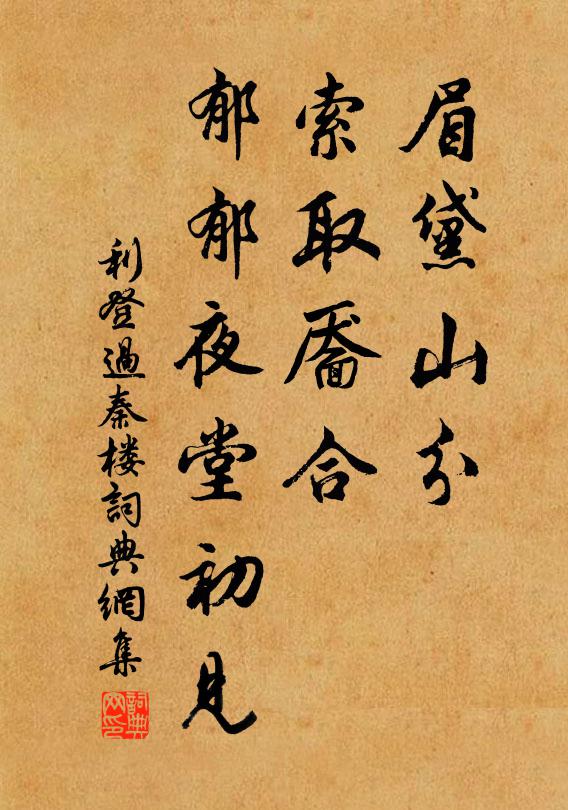 眉黛山分
索取靥合
郁郁夜堂初见
利登過秦楼詞典網集
詞典网印